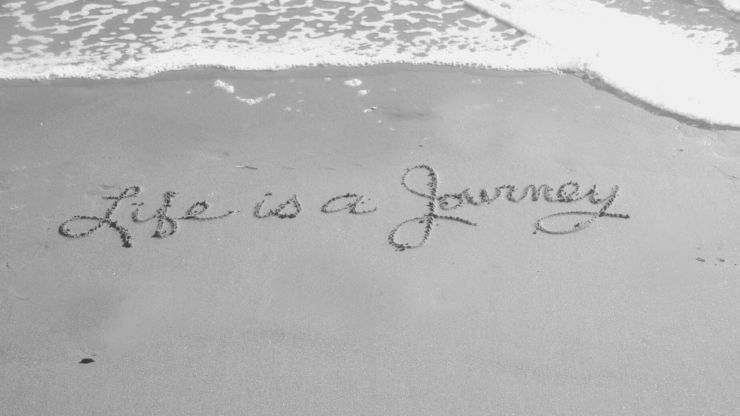 Life is a Journey